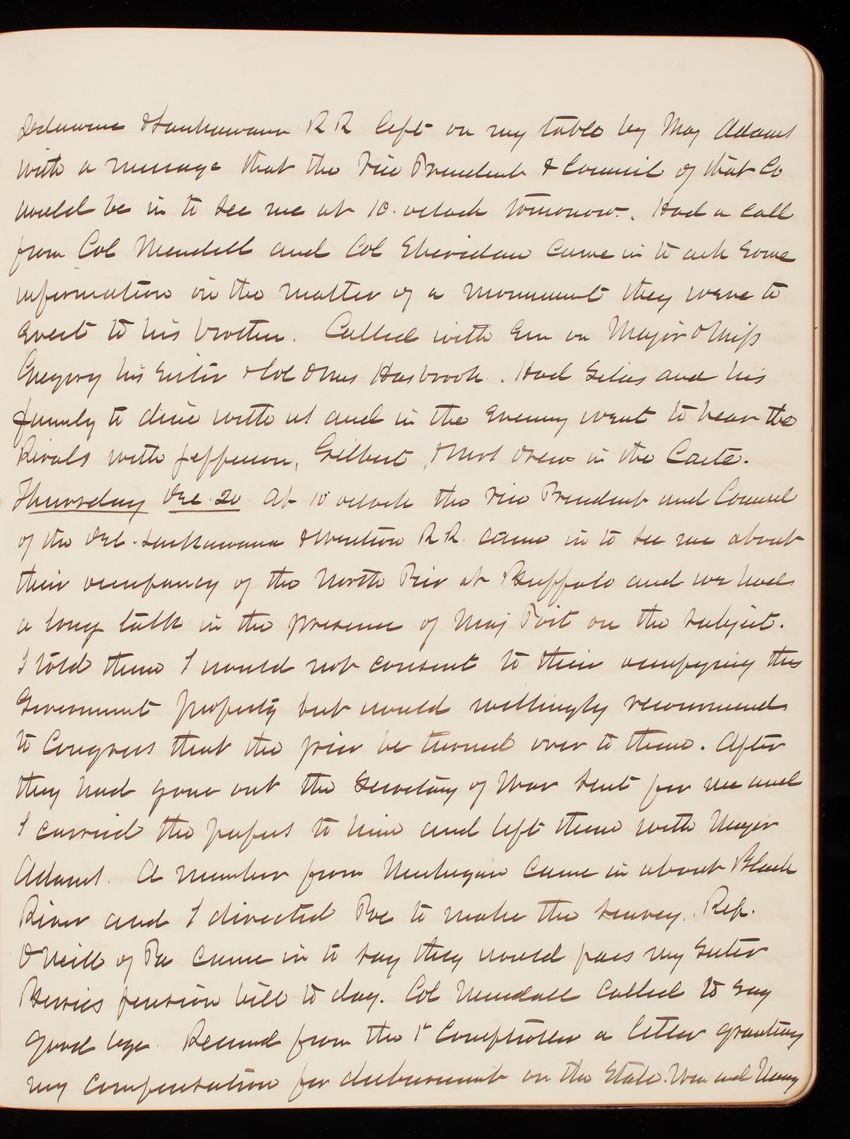 Delaware & Lackawana R R left on my table by Maj Adams
with a message that the Vice President & Council of that Co
would be in to see me at 10 oclock tomorrow. Had a call
from Col Mendell and Col Sheridan came in to ask some
information in the matter of a monument they were to
erect to his brother. Called with Em on Major & Miss
Gregory his sister & Col & Mrs Hasbrook. Had Silas and his
family to dine with us and in the evening went to hear the
Rivals with Jefferson, Gilbert, & Mrs Drew in the Caste.
Thursday Dec 20 At 10 oclock the Vice President and Counsel
of the Del. Lackawana & Western R R. came in to see me about
their occupancy of the North Pier at Buffalo and we had
a long talk in the presence of Maj Post on the subject.
I told them I would not consent to their occupying the
Government property but would willingly recommend
to Congress that the pier be turned over to them. After
they had gone out the Secretary of War sent for me and
I carried the papers to him and left them with Major
Adams. A member from Michigan came in about Black
River and I directed Poe to make the survey. Rep.
O'Neill of Pa came in to say they would pass my sister
pension bill to day. Col Mendell called to say
good bye. Received from the 1st Comptroller a letter granting
my compensation for disbursement on the State. War and Navy